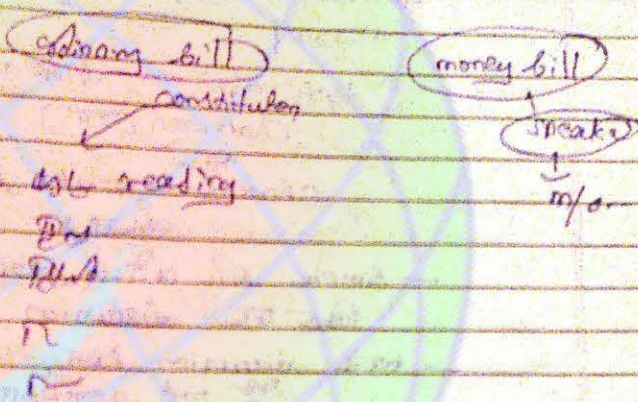 ordinary bill money bill
constitutes
speaker
1st reading
m/o
IInd
IIIrd